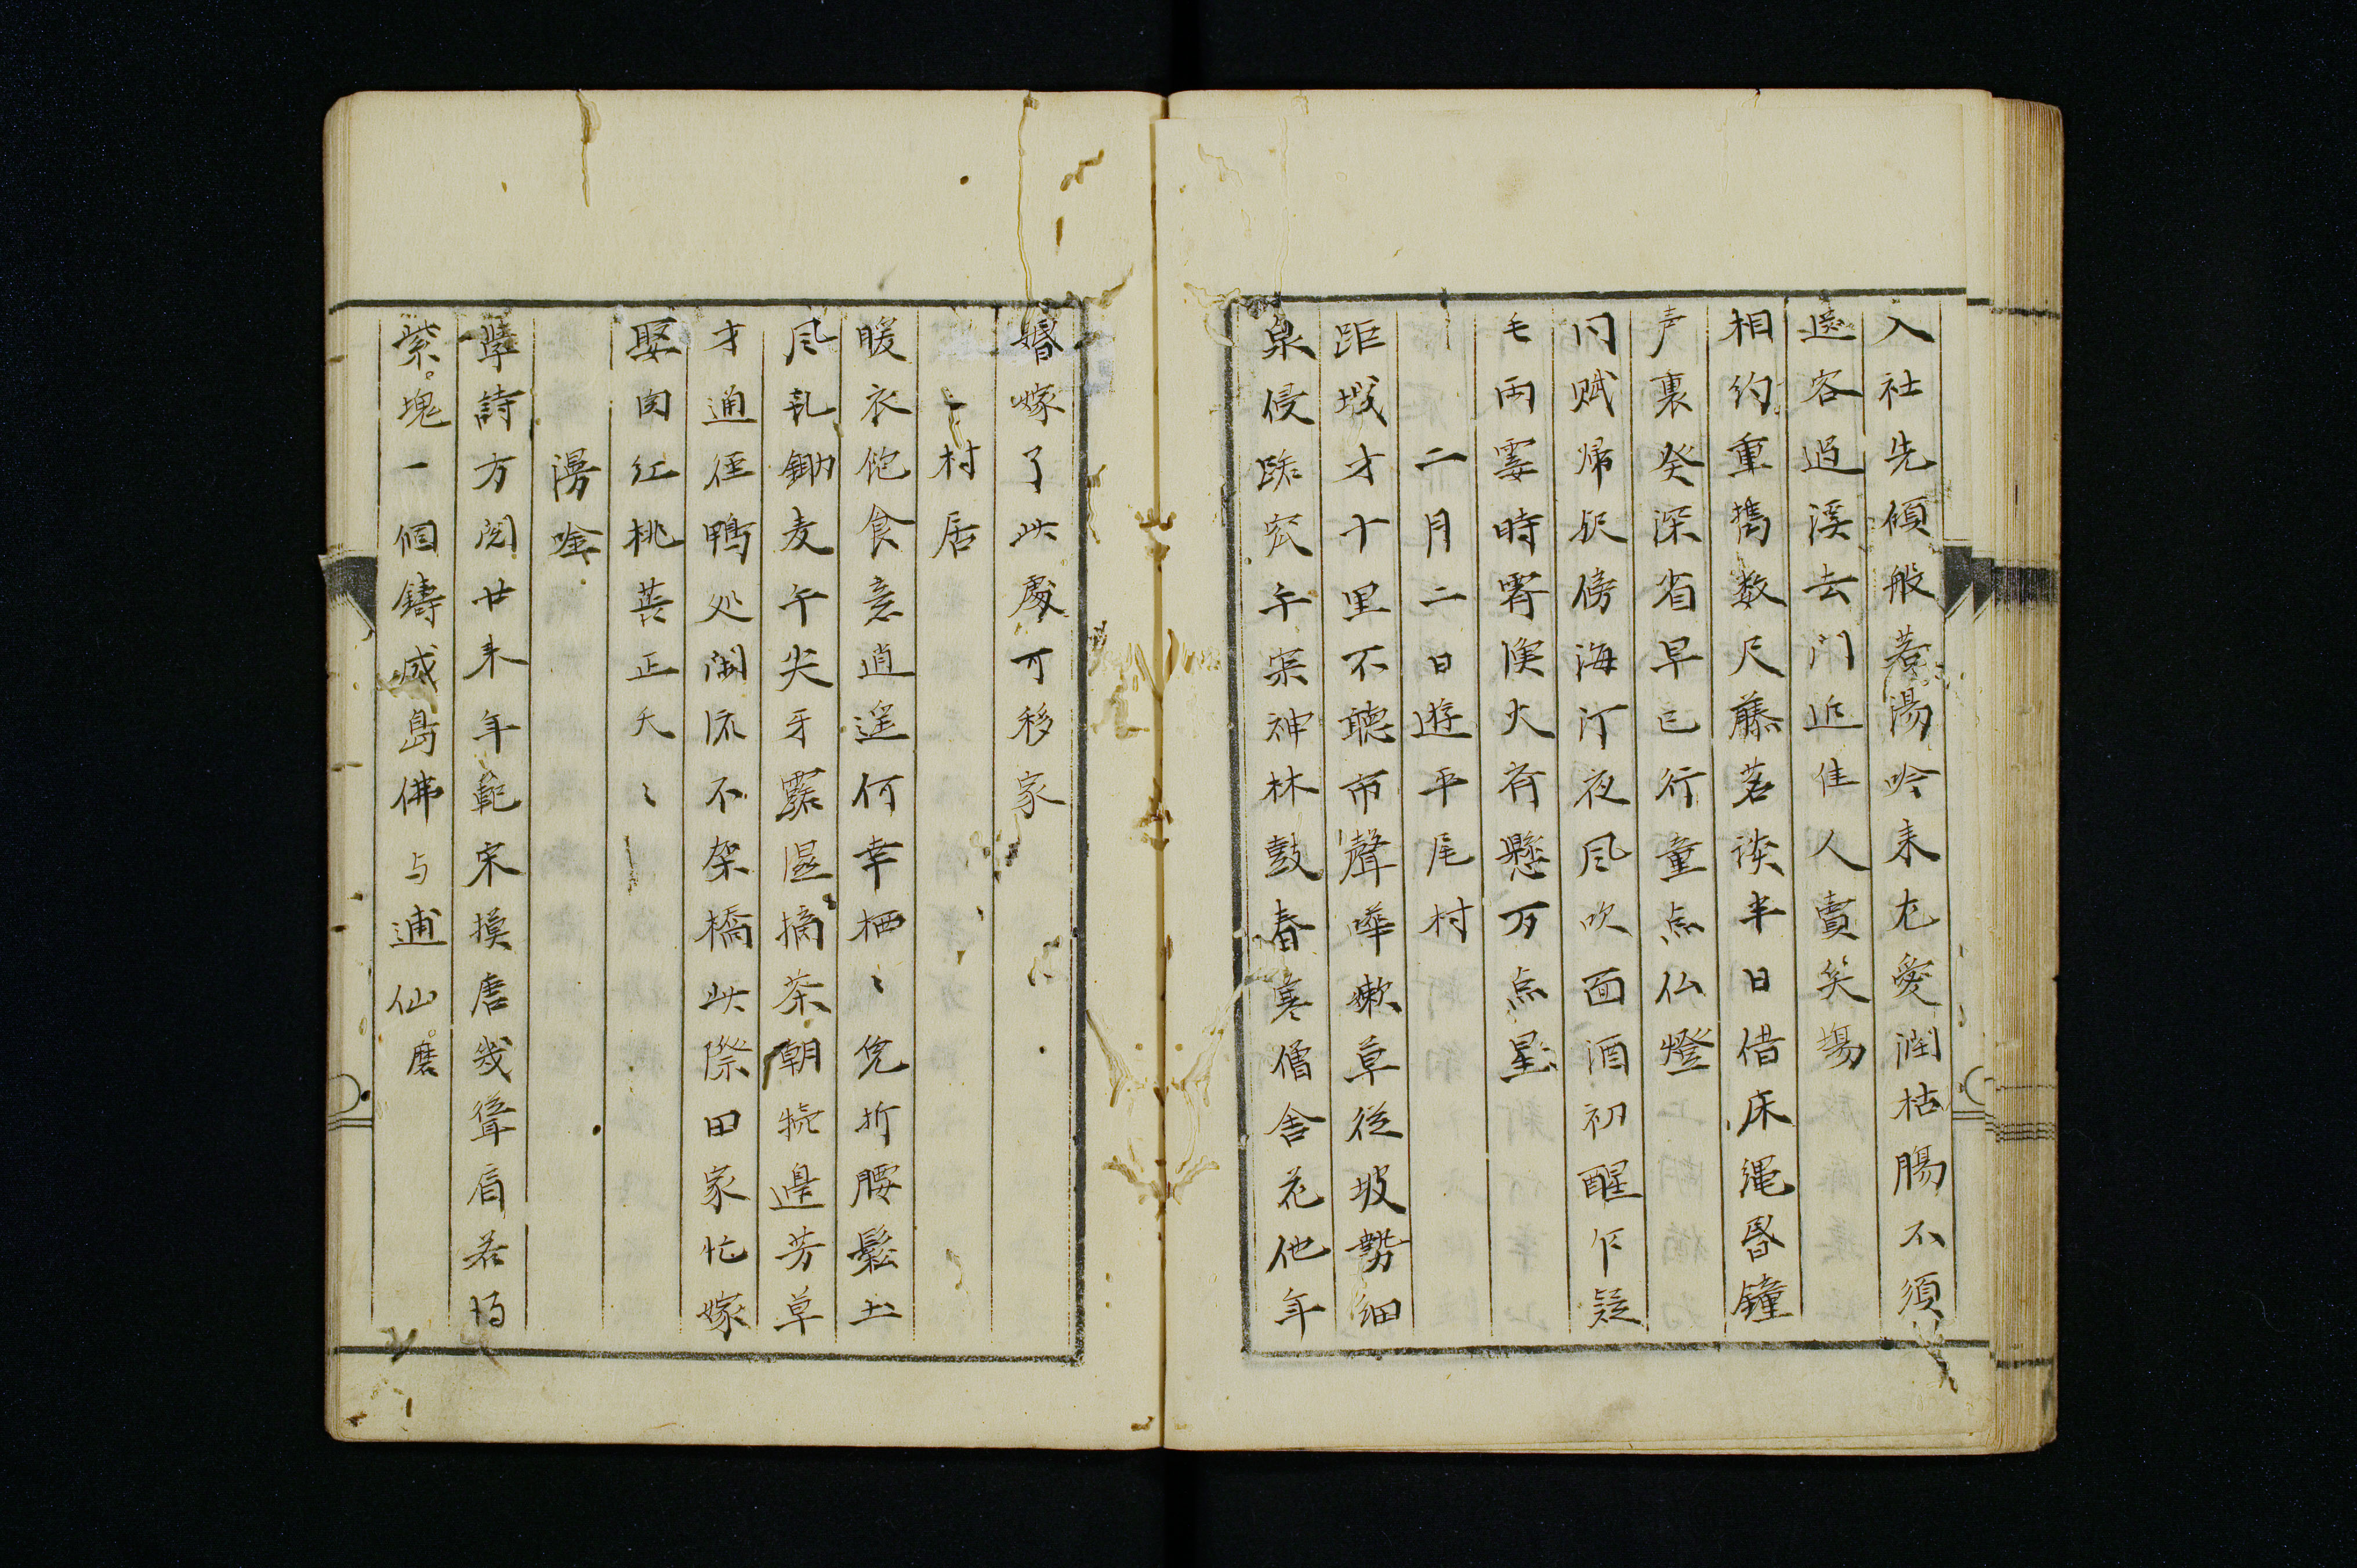 入社先傾般若湯吟来尤愛潤枯腸不須
送客過溪去門近佳人賣笑場
相約重携数尺藤茗談半日借床繩昏鐘
声裏癸深省早已行童点仏燈
同賦帰来傍海汀夜風吹面酒初醒乍疑
毛雨霎時霽漁火斉懸万点星
二月二日遊平尾村
距城才十里不聴市聲嘩嫩草従坡勢細
泉侵路窊午寒神林鼓春寒僧舎花他年
婚嫁了此處可移家
村居
暖衣飽食意逍遥何幸栖〻免折腰鬆土
風乾鋤麦午尖牙露湿摘茶朝犢邊芳草
才通径鴨処閑流不架橋此際田家忙嫁
娶肉紅桃萼正夭〻
漫唫
學詩方閲廿来年範宋摸唐幾聳肩若得
紫塊一個鋳成島佛与逋仙磨